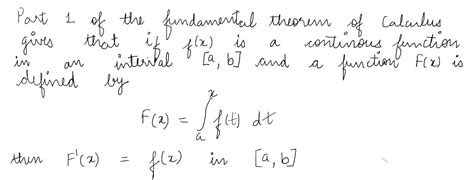 Part 1 of the fundamental theorem of Calculus
gives that if f(x) is a continous function
in an interval [a, b] and a function F(x) is
defined by
F(x) = ∫ₐˣ f(t) dt
then F'(x) = f(x) in [a, b]